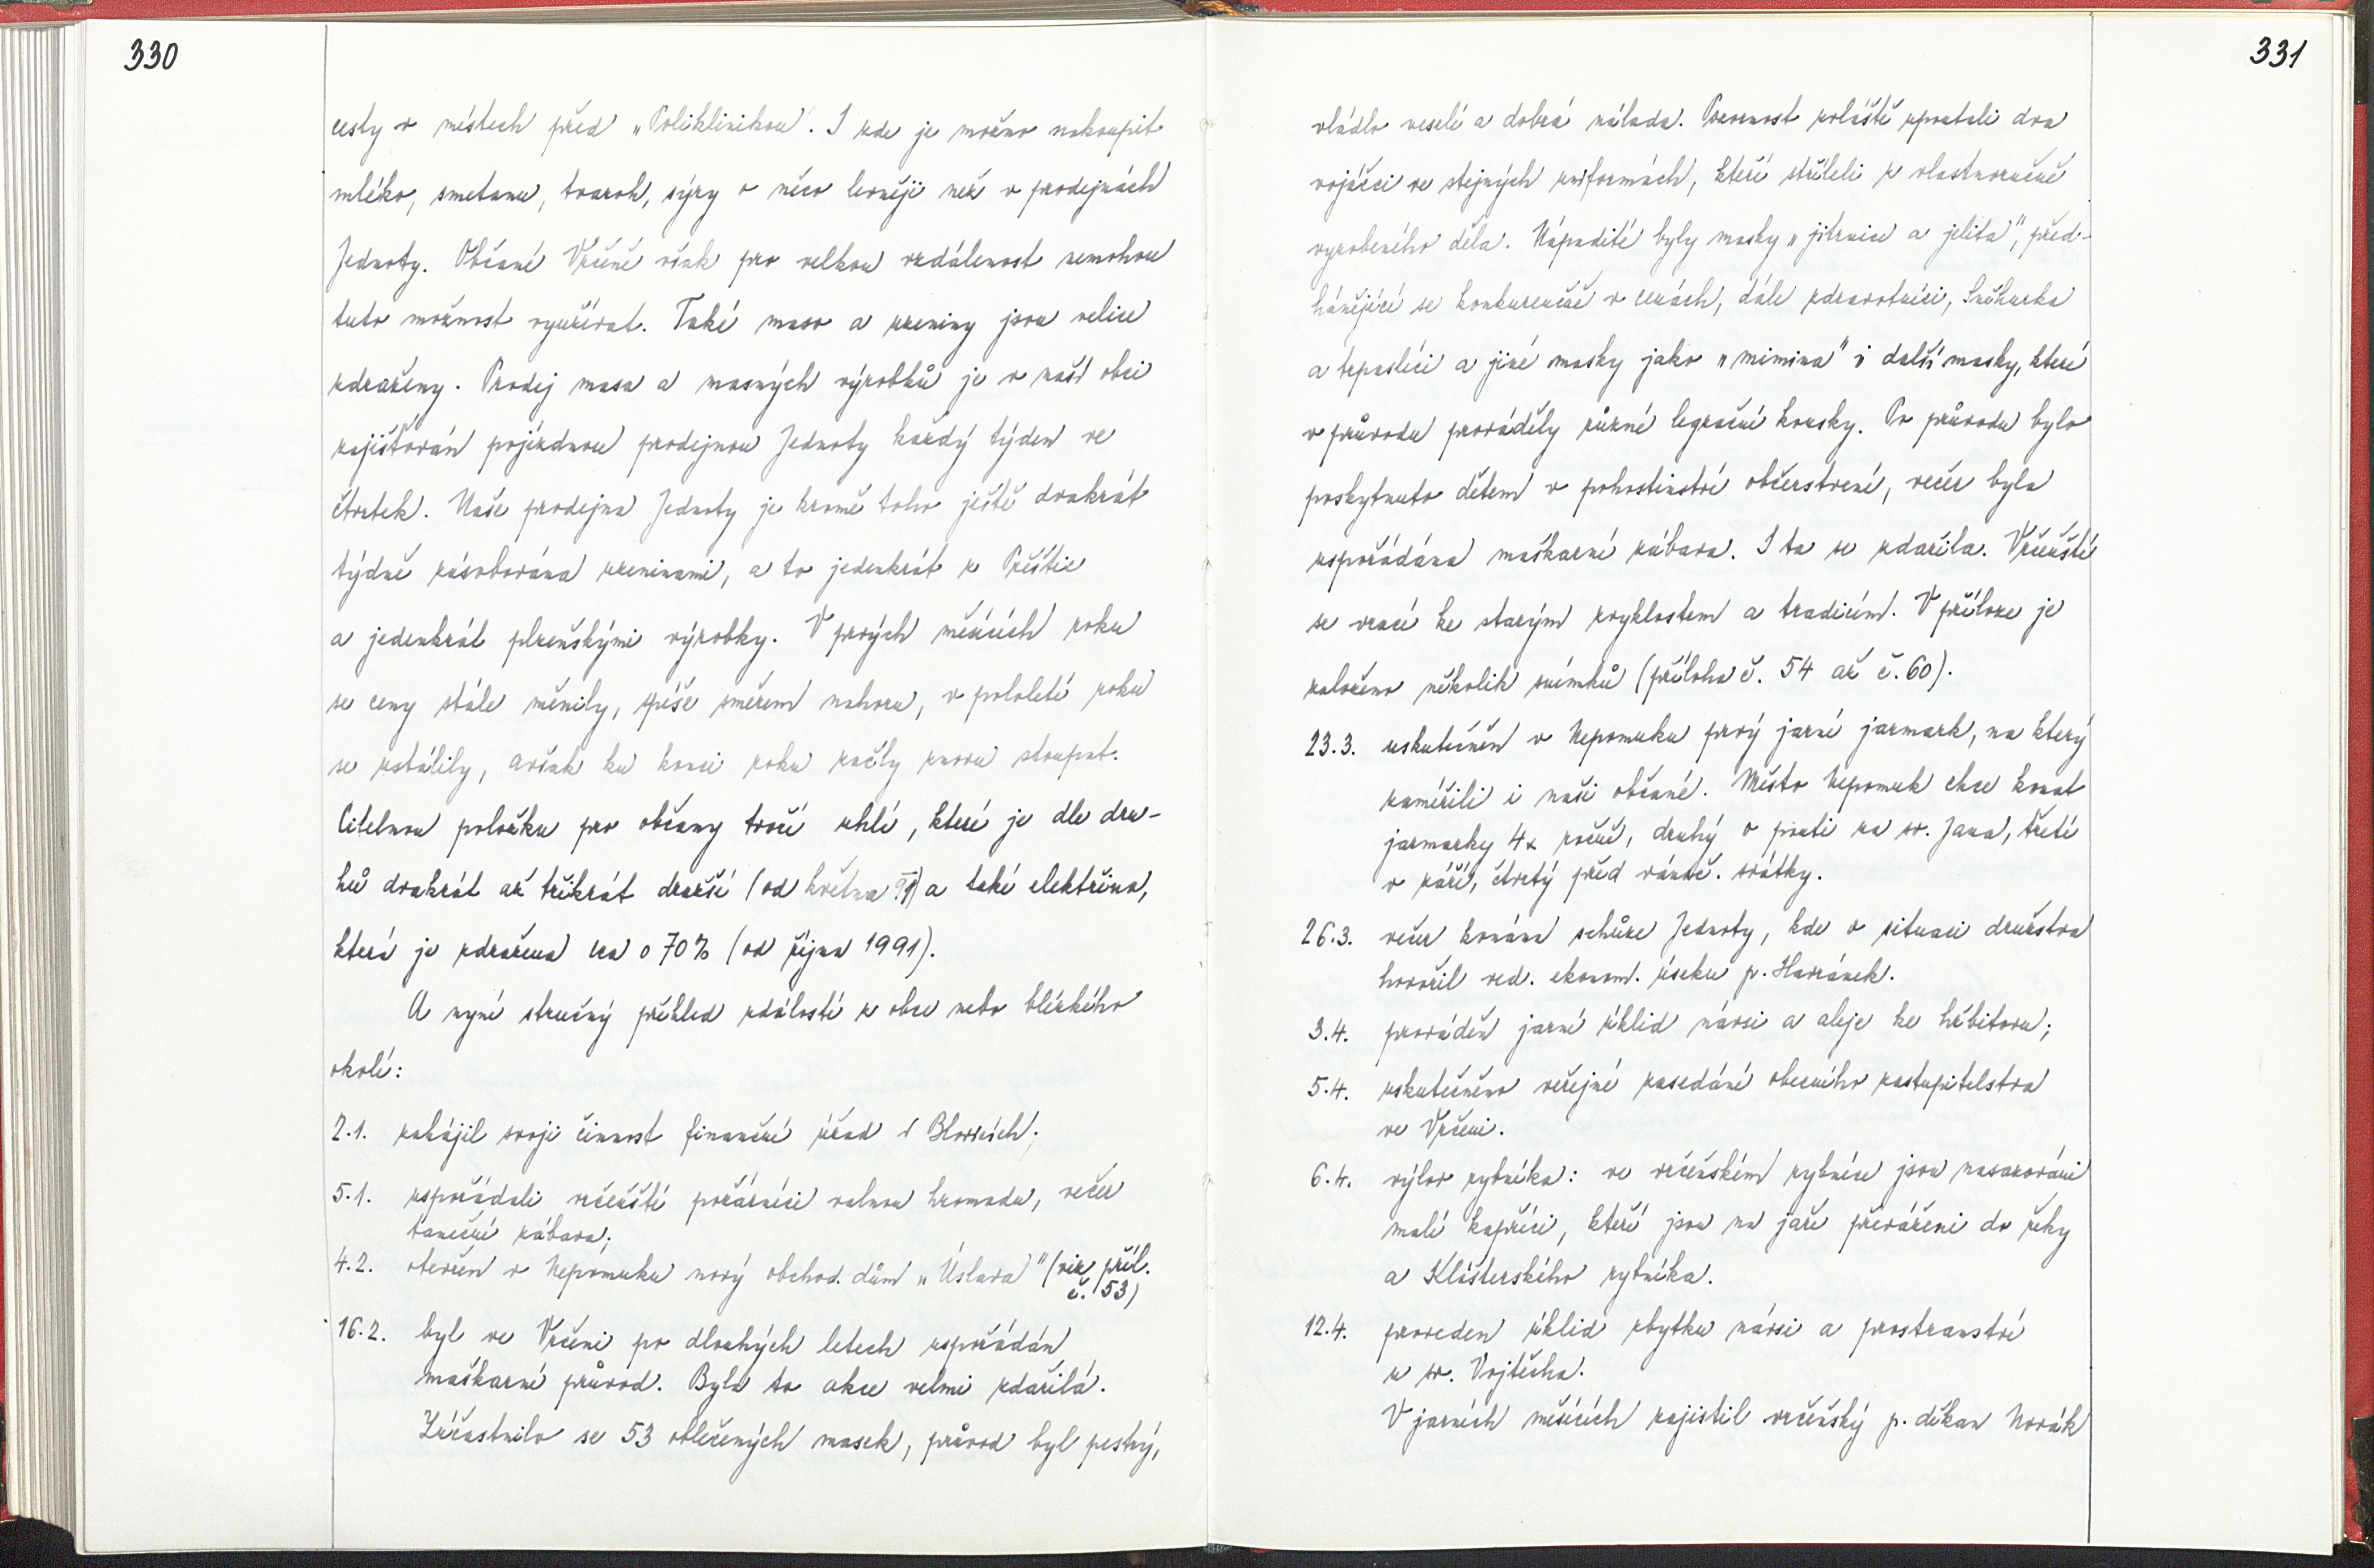 330
cesty v místech před „Poliklinikou". I zde je možno nakoupit
mléko, smetanu, tvaroh, sýry o něco levněji než v prodejnách
Jednoty. Občané Vrčeně však pro velkou vzdálenost nemohou
tuto možnost využívat. Také maso a uzeniny jsou velice
zdraženy. Prodej masa a masných výrobků je v naší obci
zajišťován pojízdnou prodejnou Jednoty každý týden ve
čtvrtek. Naše prodejna Jednoty je kromě toho ještě dvakrát
týdně zásobována uzeninami, a to jedenkrát z Přeštic
a jedenkrát plzeňskými výrobky. V prvých měsících roku
se ceny stále měnily, spíše směrem nahoru, v pololetí roku
se ustálily, avšak ku konci roku začly znovu stoupat.
Citelnou položku pro občany tvoří uhlí, které je dle dru-
hů dvakrát až třikrát dražší (od května 91) a také elektřina,
která je zdražena cca o 70% (od října 1991).
A nyní stručný přehled událostí z obce nebo blízkého
okolí:
2.1. zahájil svoji činnost finanční úřad v Blovicích;
5.1. uspořádali vrčenští požárníci valnou hromadu, večer
taneční zábava;
4.2. otevřen v Nepomuku nový obchod. dům „Úslava" (viz příl.
č. 53)
16.2. byl ve Vrčeni po dlouhých letech uspořádán
maškarní průvod. Byla to akce velmi zdařilá.
Zúčastnilo se 53 oblečených masek, průvod byl pestrý,
331
vládlo veselí a dobrá nálada. Pozornost zvláště upoutali dva
vojáčci ve stejných uniformách, kteří stříleli z vlastnoručně
vyrobeného děla. Nápadité byly masky „jitrnice a jelita", před-
hánějící se konkurenčně v cenách, dále zdravotníci, Sněhurka
a trpaslíci a jiné masky jako „mimina" i další masky, které
v průvodu prováděly různé legrační kousky. Po průvodu bylo
poskytnuto dětem v pohostinství občerstvení, večer byla
uspořádána maškarní zábava. I ta se zdařila. Vrčenští
se vrací ke starým zvyklostem a tradicím. V příloze je
založeno několik snímků (příloha č. 54 až č. 60).
23.3. uskutečněn v Nepomuku prvý jarní jarmark, na který
zamířili i naši občané. Město Nepomuk chce konat
jarmarky 4x ročně, druhý o pouti na sv. Jana, třetí
v září, čtvrtý před vánoč. svátky.
26.3. večer konána schůze Jednoty, kde o situaci družstva
hovořil ved. ekonom. úseku p. Havránek.
3.4. prováděn jarní úklid návsi a aleje ke hřbitovu;
5.4. uskutečněno veřejné zasedání obecního zastupitelstva
ve Vrčeni.
6.4. výlov rybníka: ve vrčenském rybníce jsou nasazováni
malí kapříci, kteří jsou na jaře převáženi do řeky
a Klášterského rybníka.
12.4. proveden úklid zbytku návsi a prostranství
u sv. Vojtěcha.
V jarních měsících zajistil vrčenský p. děkan Novák